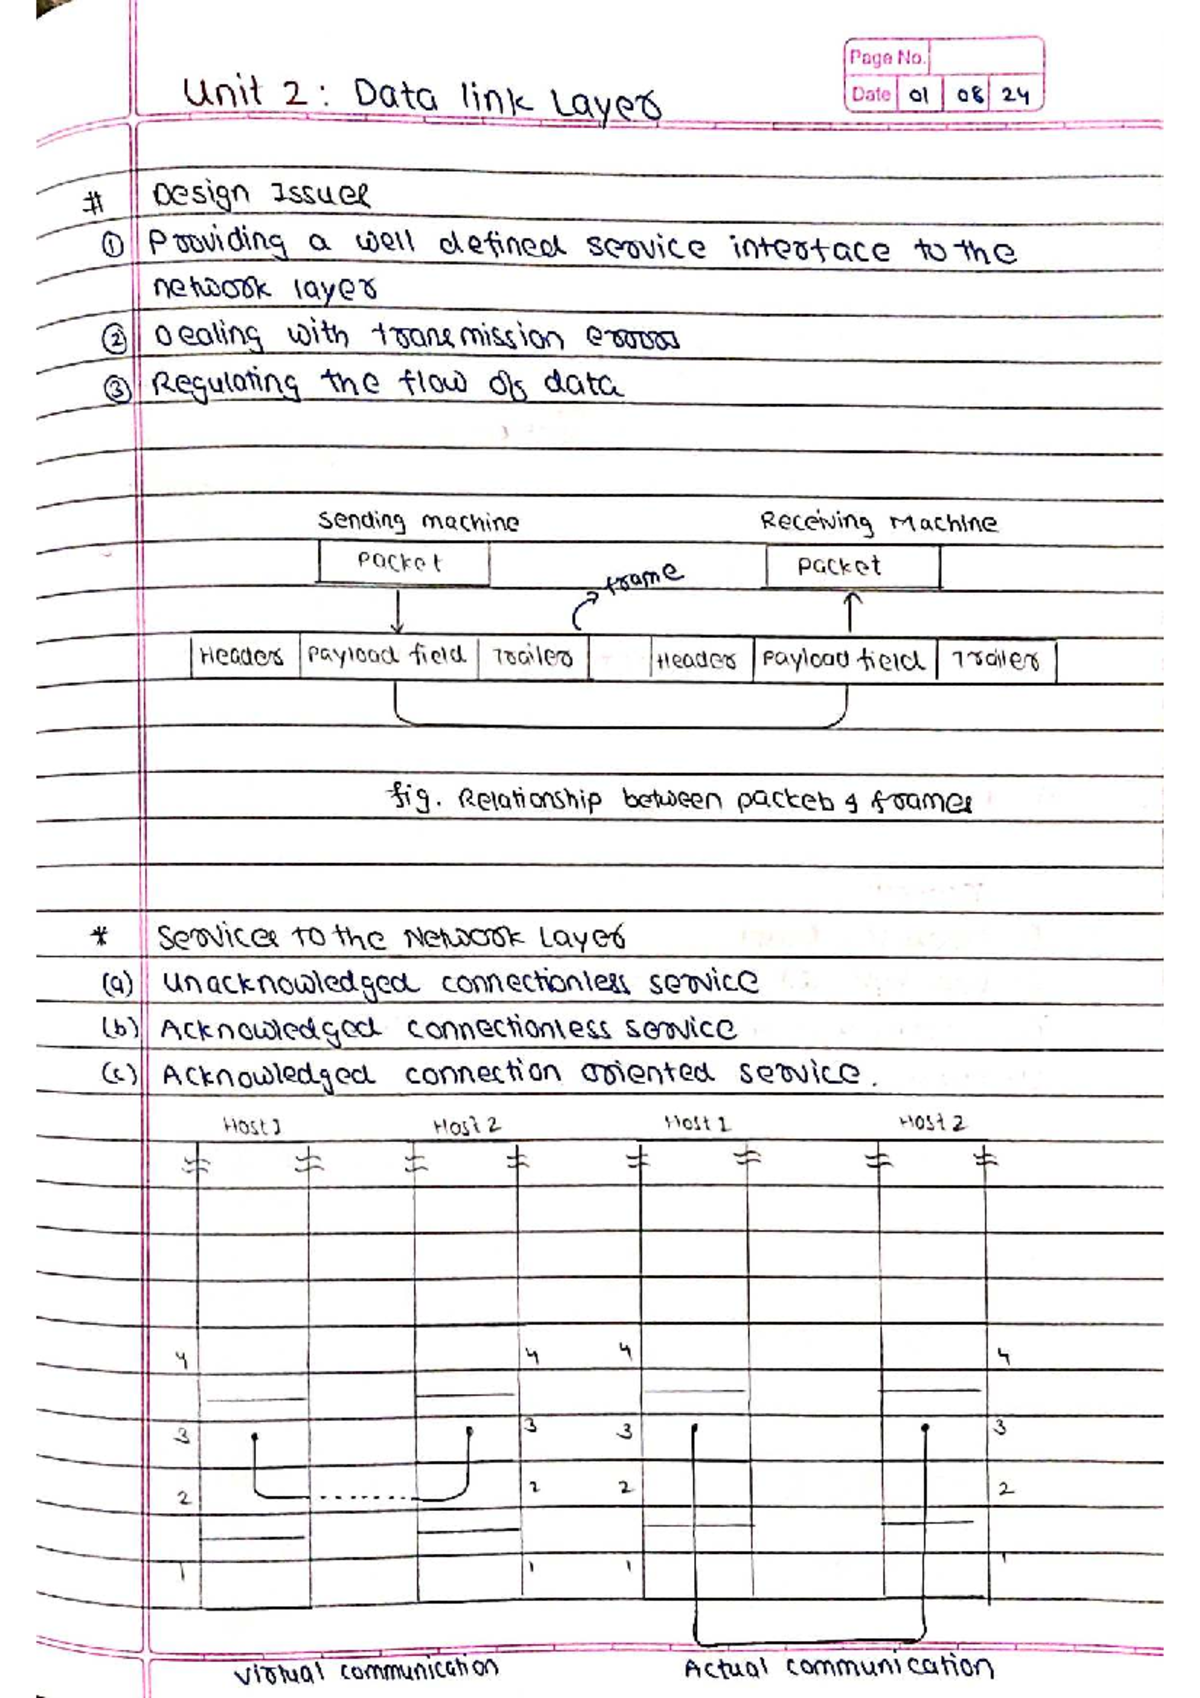 Page No.
Date 01 08 24
Unit 2 : Data link Layer
# Design Issues
① Providing a well defined service interface to the
network layer
② Dealing with transmission errors
③ Regulating the flow of data
Sending machine Receiving Machine
Packet Packet
frame
Header Payload field Trailer Header Payload field Trailer
fig. Relationship between packets & frames
* Services to the Network Layer
(a) Unacknowledged connectionless service
(b) Acknowledged connectionless service
(c) Acknowledged connection oriented service.
Host 1 Host 2 Host 1 Host 2
4 4 4 4
3 3 3 3
2 2 2 2
1 1 1 1
Virtual communication Actual communication